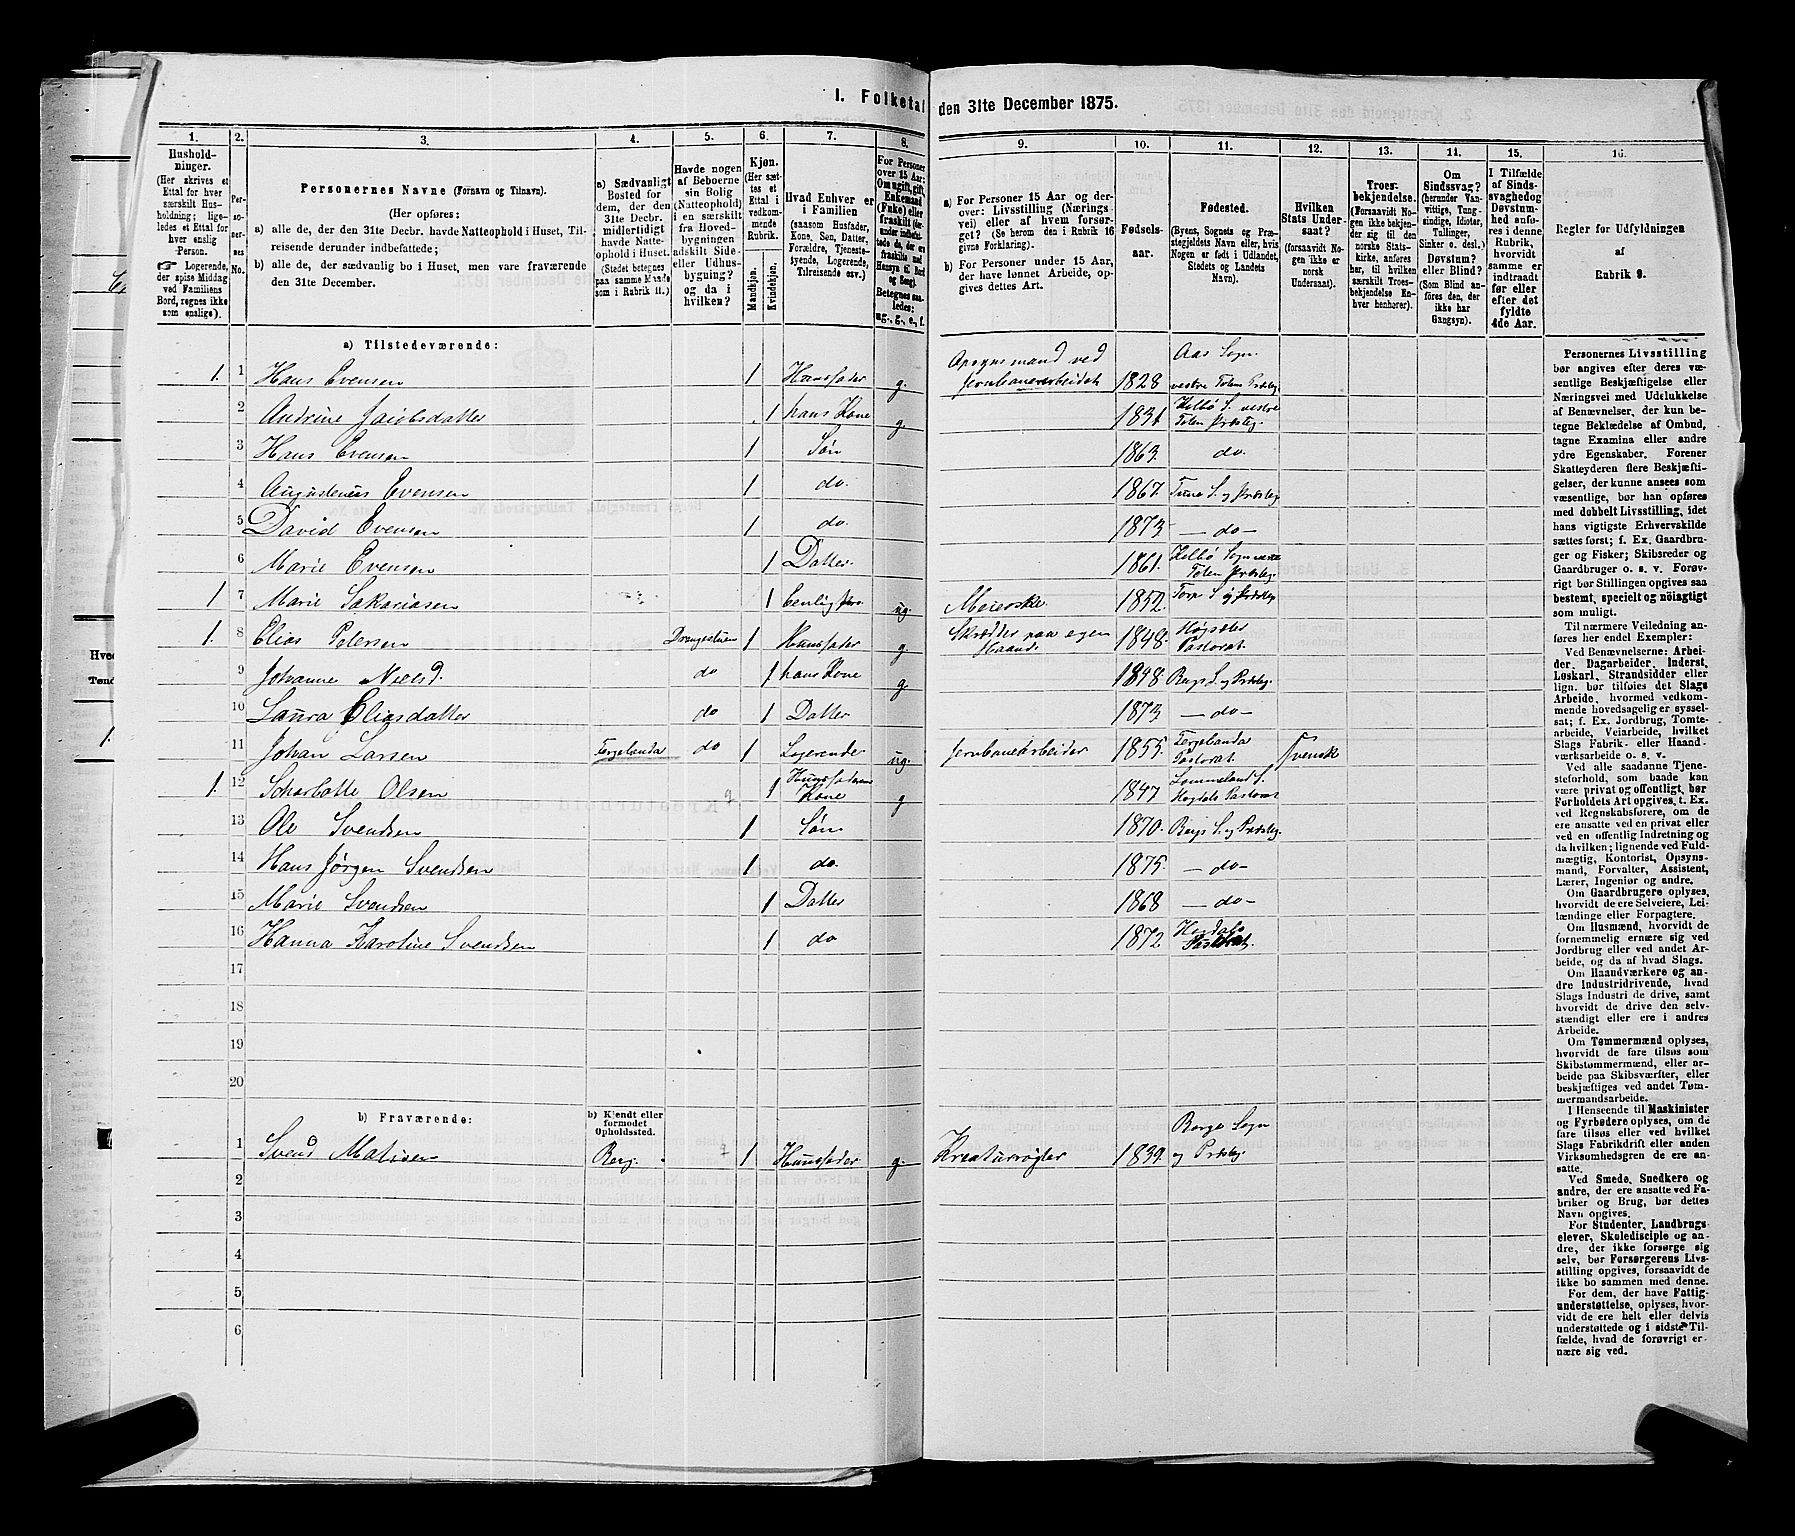 I. Folketal den 31te December 1875.
1. 2. 3. 4. 5. 6. 7. 8. 9. 10. 11. 12. 13. 14. 15. 16.
Husholdninger.
(Her skrives et Ettal for hver særskilt Husholdning; ligeledes et Ettal for hver enslig Person.
☞ Logerende, der spise Middag ved Familiens Bord, regnes ikke som enslige).
Personernes No.
Personernes Navne (Fornavn og Tilnavn).
(Her opføres:
a) alle de, der den 31te Decbr. havde Natteophold i Huset, Tilreisende derunder indbefattede;
b) alle de, der sædvanlig bo i Huset, men vare fraværende den 31te December.
a) Sædvanligt Bosted for dem, der den 31te Decbr. midlertidigt havde Natteophold i Huset.
(Stedet betegnes paa samme Maade som i Rubrik 11.)
Havde nogen af Beboerne sin Bolig (Natteophold) i en særskilt fra Hovedbygningen adskilt Side- eller Udhusbygning? og da i hvilken?
Kjøn.
(Her sættes et Ettal i vedkommende Rubrik.
Mandkjøn. Kvindekjøn.
Hvad Enhver er i Familien
(saasom Husfader, Kone, Søn, Datter, Forældre, Tjenestetyende, Logerende, Tilreisende osv.)
For Personer over 15 Aar: Om ugift, gift, Enkemand (Enke) eller fraskilt
Betegnes saaledes: ug., g., e., f.
a) For Personer 15 Aar og derover: Livsstilling (Næringsvei) eller af hvem forsørget? (Se herom den i Rubrik 16 givne Forklaring).
b) For Personer under 15 Aar, der have lønnet Arbeide, opgives dettes Art.
Fødselsaar.
Fødested.
(Byens, Sognets og Præstegjeldets Navn eller, hvis Nogen er født i Udlandet, Stedets og Landets Navn).
Hvilken Stats Undersaat?
(forsaavidt Nogen ikke er norsk Undersaat).
Troesbekjendelse.
(Forsaavidt Nogen ikke bekjender sig til den norske Statskirke, anføres her, til hvilken særskilt Troesbekjendelse Enhver henhører).
Om Sindssvag? (herunder Vanvittige, Tungsindige, Idioter, Tullinger, Sinker o. desl.) Døvstum? eller Blind?
(Som Blind anføres den, der ikke har Gangsyn).
I Tilfælde af Sindssvaghed og Døvstumhed anføres i denne Rubrik, hvorvidt samme er indtraadt før eller efter det fyldte 4de Aar.
Regler for Udfyldningen af Rubrik 9.
a) Tilstedeværende:
1. 1 Hans Evensen 1 Huusfader g. Opsynsmand ved Jernbanearbeidet 1828 Aas Sogn vestre Toten Prdstg.
2 Andrine Jacobsdatter 1 hans Kone g. 1831 Kolbø S. vestre Toten Prdstg.
3 Hans Evensen 1 Søn 1863 do.
4 Augustenius Evensen 1 do. 1867. Tune S. og Prdstg.
5 David Evensen 1 do 1873 — do —
6 Marie Evensen 1 Datter. 1861. Kolbø Sogn Toten Prdstg.
1 7 Marie Sakariasen 1 Enslig ug. Meierske 1852. Torp S. og Prdstg
1. 8 Elias Petersen Drengestuen 1 Huusfader g Skrædder paa egen Haand 1848. Høgsæter Pastorat.
9 Johanne Niels D. do 1 hans Kone g. 1848 Bergs S. og Prdstg.
10 Laura Eliasdatter do 1 Datter 1873 — do —
11 Johan Larsen Fergelanda do 1 Logerende ug. Jernbanearbeider 1855. Fergelanda Pastorat. Svensk
1. 12 Scharlotte Olsen 1 Huusfaderens Kone g 1847 Lommeland S. Hogdals Pastorat
13 Ole Svendsen 1 Søn 1870. Bergs S. og Prdstg.
14 Hans Jørgen Svendsen 1 do. 1875. — do —
15 Marie Svendsen 1 Datter 1868 — do —
16 Hanna Karoline Svendsen 1 do 1872 Hogdals Pastorat.
17
18
19
20
b) Fraværende:
b) Kjendt eller formodet Opholdssted.
1 Svend Matisen Berg. 1 Huusfader g. Kreaturrøgter 1839. Bergs Sogn og Prdstg.
2
3
4
5
6
Personernes Livsstilling bør angives efter deres væsentlige Beskjæftigelse eller Næringsvei med Udelukkelse af Benævnelser, der kun betegne Beklædelse af Ombud, tagne Examina eller andre ydre Egenskaber. Forener Skatteyderen flere Beskjæftigelser, der kunne ansees som væsentlige, bør han opføres med dobbelt Livsstilling, idet hans vigtigste Erhvervskilde sættes først; f. Ex. Gaardbruger og Fisker; Skibsreder og Gaardbruger o. s. v. Forøvrigt bør Stillingen opgives saa bestemt, specielt og nøiagtigt som muligt.
Til nærmere Veiledning anføres her endel Exempler:
Ved Benævnelserne: Arbeider, Dagarbeider, Inderst, Løskarl, Strandsidder eller lign. bør tilføies det Slags Arbeide, hvormed vedkommende hovedsagelig er sysselsat; f. Ex. Jordbrug, Tomtearbeide, Veiarbeide, hvilket Slags Fabrik- eller Haandværksarbeide o. s. v.
Ved alle saadanne Tjenesteforhold, som baade kan være privat og offentligt, bør Forholdets Art opgives, t. Ex. ved Regnskabsførere, om de ere ansatte ved en privat eller ved en offentlig Indretning og da hvilken; lignende ved Fuldmægtig, Kontorist, Opsynsmand, Forvalter, Assistent, Lærer, Ingeniør og andre.
Om Gaardbrugere oplyses, hvorvidt de ere Selveiere, Leilændinge eller Forpagtere.
Om Husmænd, hvorvidt de fornemmelig ernære sig ved Jordbrug eller ved andet Arbeide, og da af hvad Slags.
Om Haandværkere og andre Industridrivende, hvad Slags Industri de drive, samt hvorvidt de drive den selvstændigt eller ere i andres Arbeide.
Om Tømmermænd oplyses, hvorvidt de fare tilsøs som Skibstømmermænd, eller arbeide paa Skibsværfter, eller beskjæftiges ved andet Tømmermandsarbeide.
I Henseende til Maskinister og Fyrbødere oplyses, om de fare tilsøs eller ved hvilket Slags Fabrikdrift eller anden Virksomhedsgren de ere ansatte.
Ved Smede, Snedkere og andre, der ere ansatte ved Fabriker og Brug, bør dettes Navn opgives.
For Studenter, Landbrugselever, Skoledisciple og andre, der ikke forsørge sig selv, bør Forsørgerens Livsstilling opgives, forsaavidt de ikke bo sammen med denne.
For dem, der have Fattigunderstøttelse, oplyses, hvorvidt de ere helt eller delvis understøttede og i sidste Tilfælde, hvad de forøvrigt ernære sig ved.